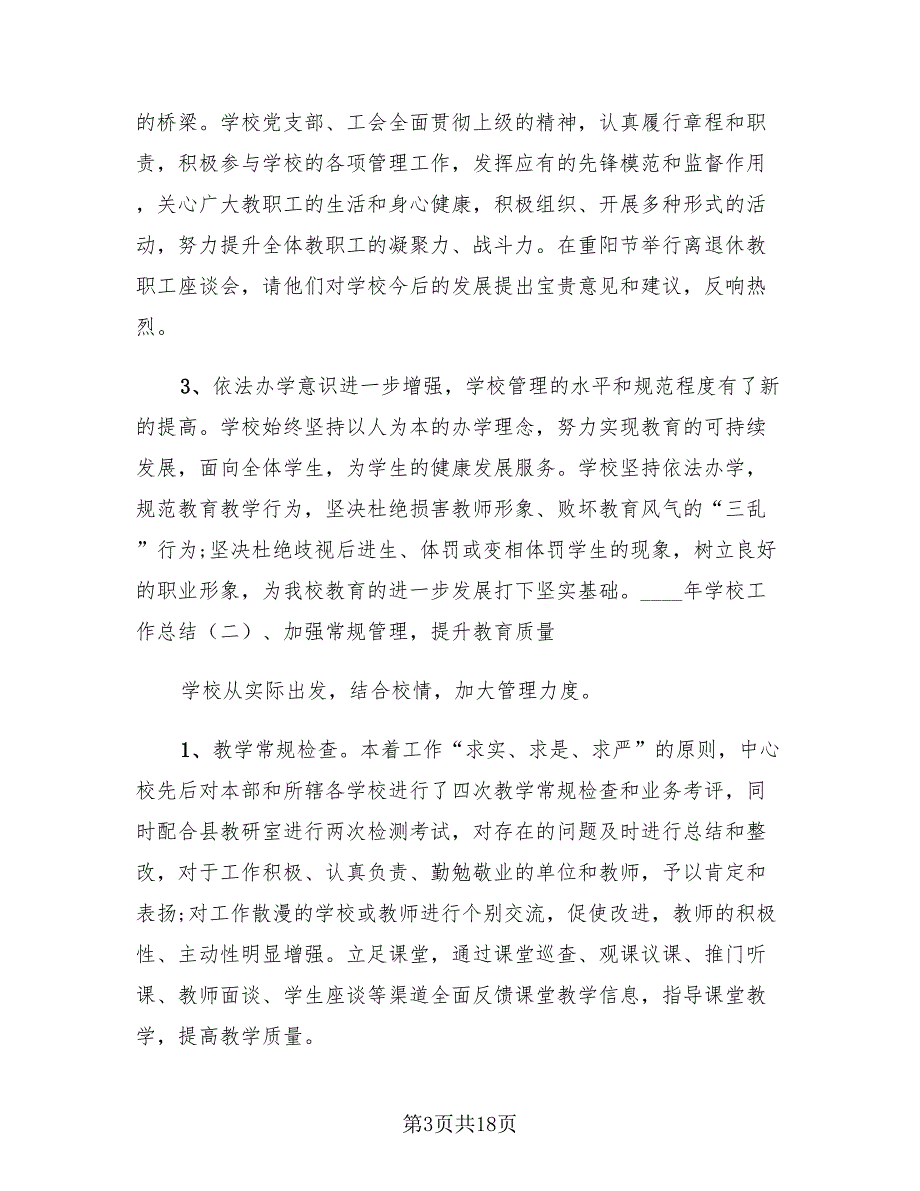 的桥梁。学校党支部、工会全面贯彻上级的精神，认真履行章程和职
责，积极参与学校的各项管理工作，发挥应有的先锋模范和监督作用
，关心广大教职工的生活和身心健康，积极组织、开展多种形式的活
动，努力提升全体教职工的凝聚力、战斗力。在重阳节举行离退休教
职工座谈会，请他们对学校今后的发展提出宝贵意见和建议，反响热
烈。
3、依法办学意识进一步增强，学校管理的水平和规范程度有了新
的提高。学校始终坚持以人为本的办学理念，努力实现教育的可持续
发展，面向全体学生，为学生的健康发展服务。学校坚持依法办学，
规范教育教学行为，坚决杜绝损害教师形象、败坏教育风气的“三乱
”行为;坚决杜绝歧视后进生、体罚或变相体罚学生的现象，树立良好
的职业形象，为我校教育的进一步发展打下坚实基础。____年学校工
作总结（二）、加强常规管理，提升教育质量
学校从实际出发，结合校情，加大管理力度。
1、教学常规检查。本着工作“求实、求是、求严”的原则，中心
校先后对本部和所辖各学校进行了四次教学常规检查和业务考评，同
时配合县教研室进行两次检测考试，对存在的问题及时进行总结和整
改，对于工作积极、认真负责、勤勉敬业的单位和教师，予以肯定和
表扬;对工作散漫的学校或教师进行个别交流，促使改进，教师的积极
性、主动性明显增强。立足课堂，通过课堂巡查、观课议课、推门听
课、教师面谈、学生座谈等渠道全面反馈课堂教学信息，指导课堂教
学，提高教学质量。
第3页共18页